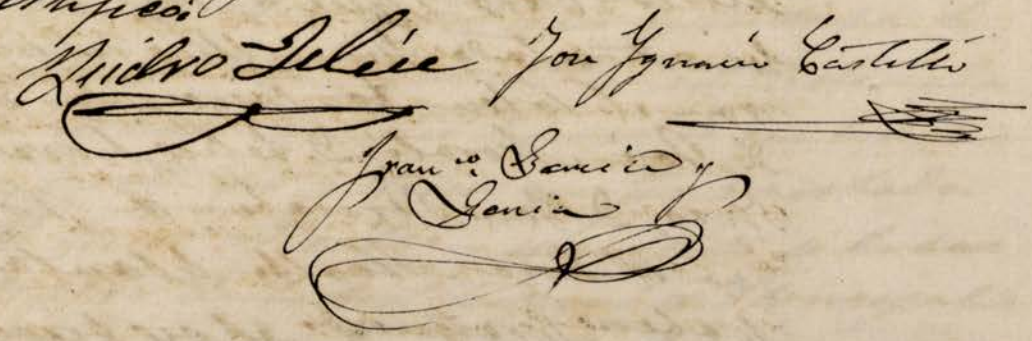 Ysidro Felicie José Ygnacio Castillo
Fran.co Garcia y
Garcia